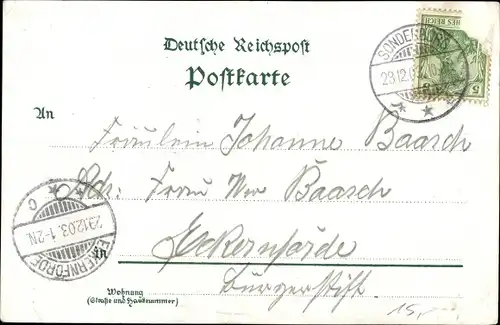 Deutsche Reichspost
Postkarte
SONDERBURG
23.12.0
HES REICH
5
An
Fräulein Johanne Baasch
Adr: Frau Ww Baasch
ECKERNFÖRDE
23.12.03. 1-2N
C
in Eckernförde
Bürgerstift
Wohnung
(Straße und Hausnummer)
15,-